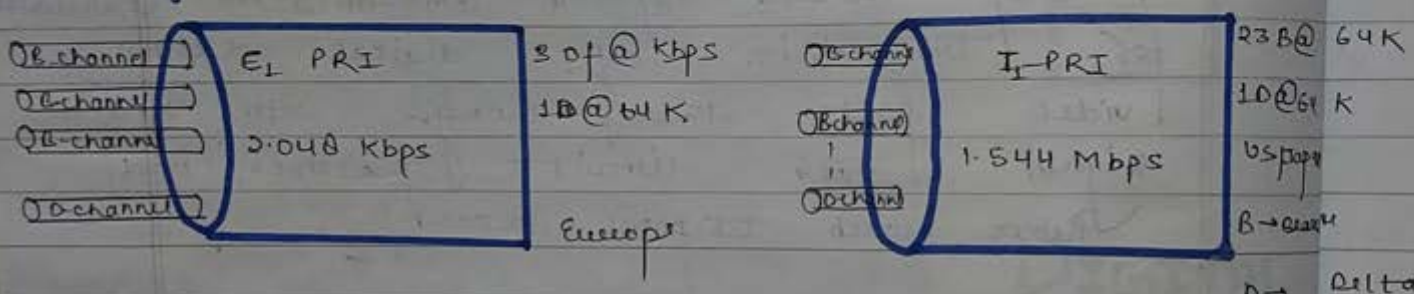 B-channel
B-channel
B-channel
D-channel
E1 PRI
2.048 Kbps
3 of @ Kbps
1D @ 64 K
Europe
Bchannel
Bchannel
Dchannel
I1-PRI
1.544 Mbps
23B@ 64K
1D@64 K
B→
D→ Delta